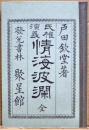 戸田欽堂著
民権演義
情海波瀾 全
發兌書林 聚星館